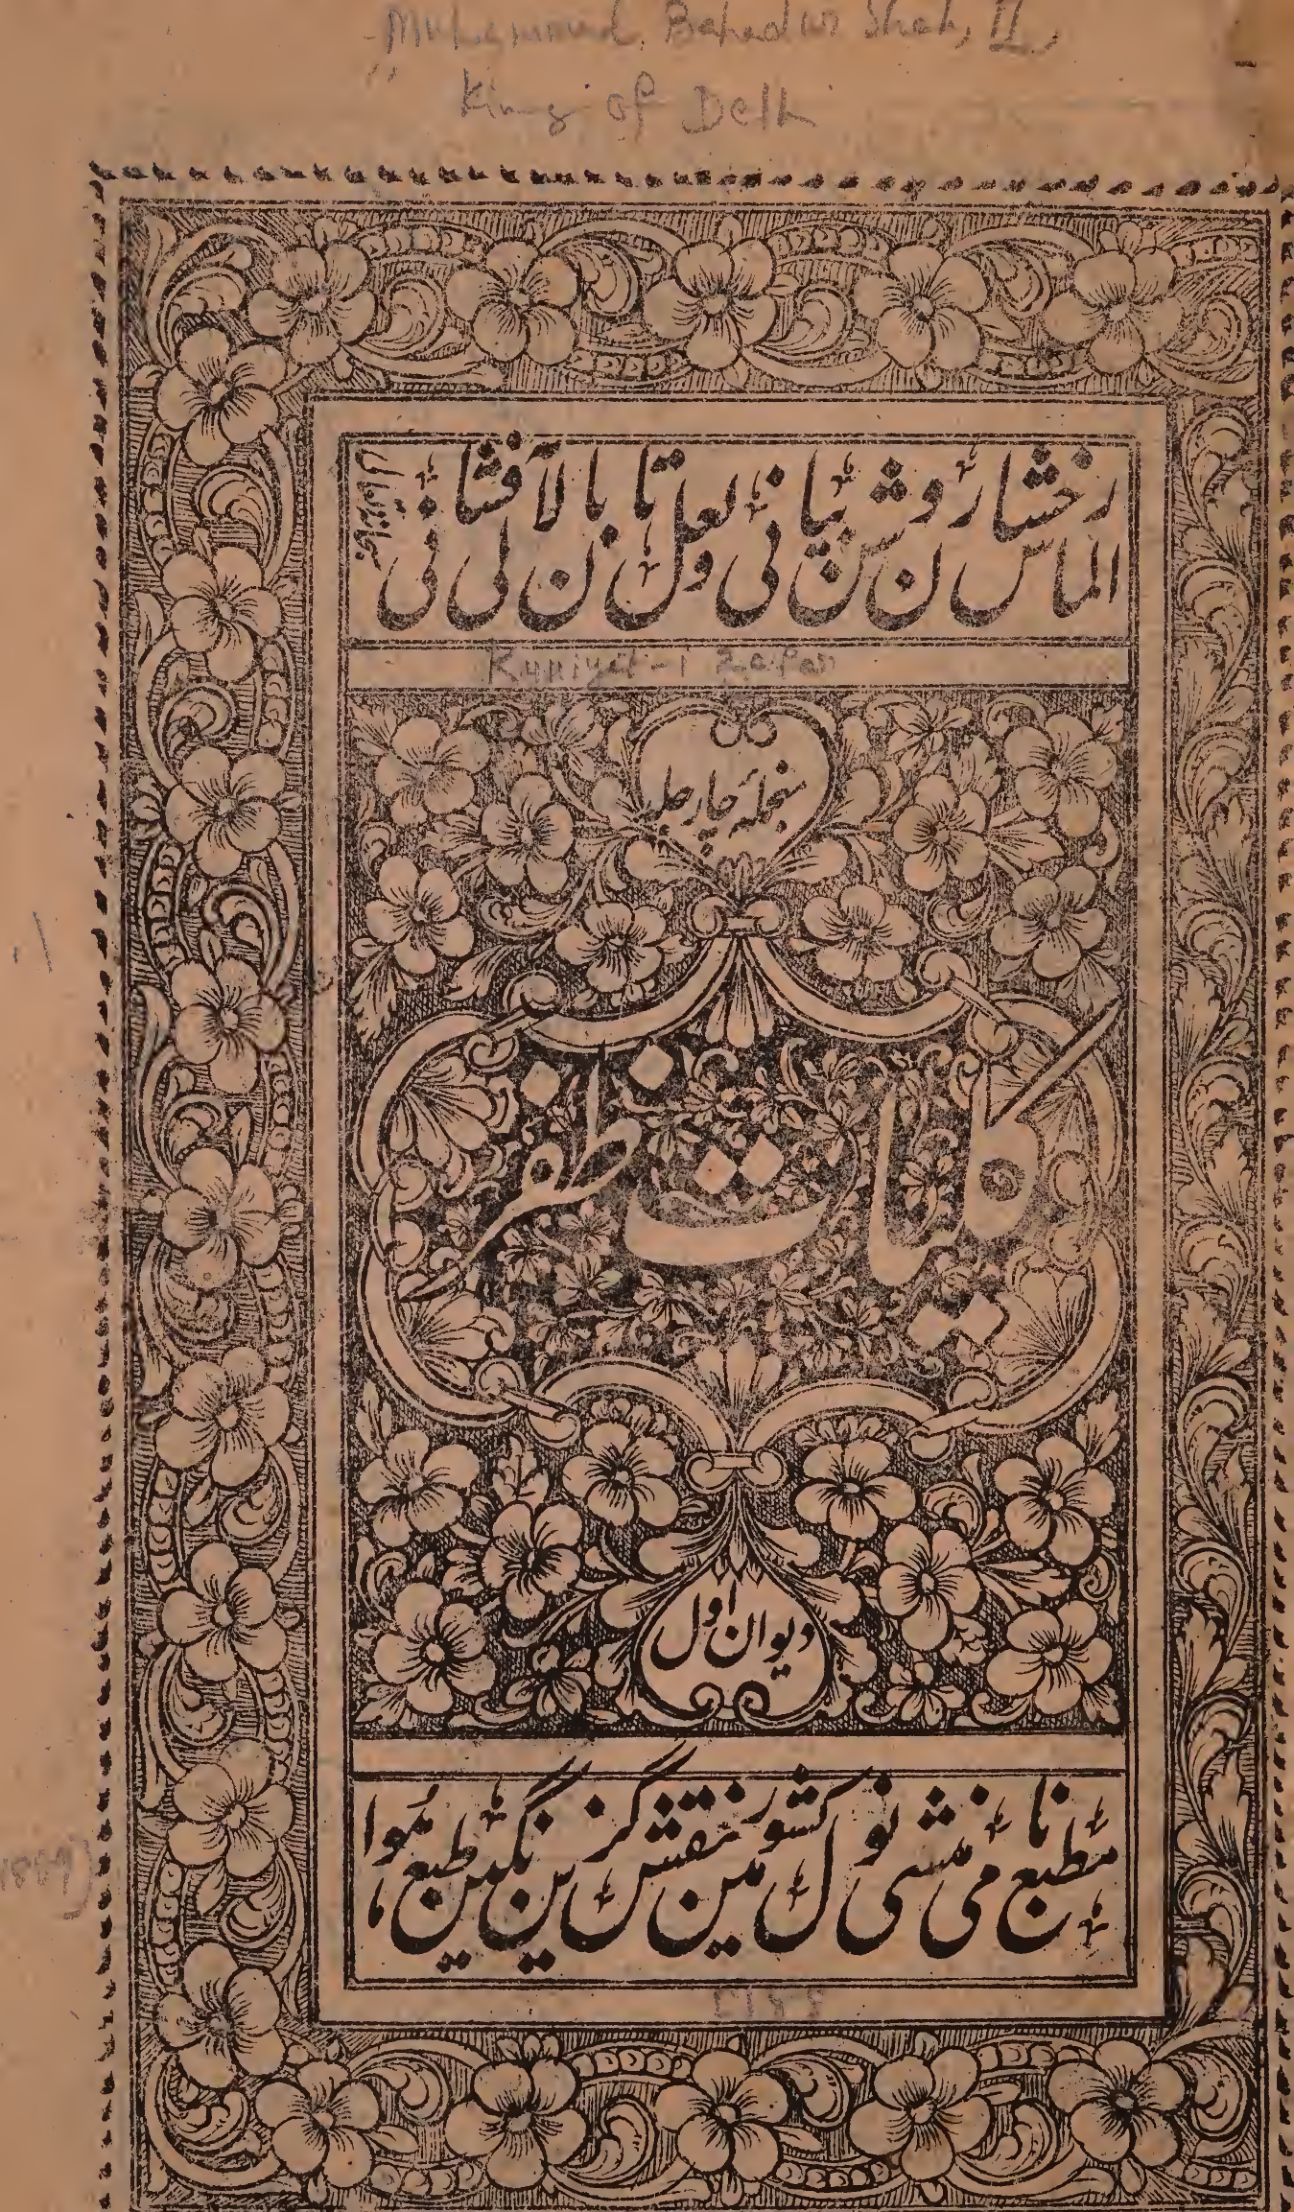 Muhammad, Bahadur Shah, II,
King of Delhi
الماس رخشان روشن بیانی و لعل تابان بالا فشانی
Kuniyat-i Zafar
منجملۂ چار جلد
کلیات ظفر
دیوان اول
مطبع نامی منشی نول کشور مین نقش گزین نگین طبع ہوا